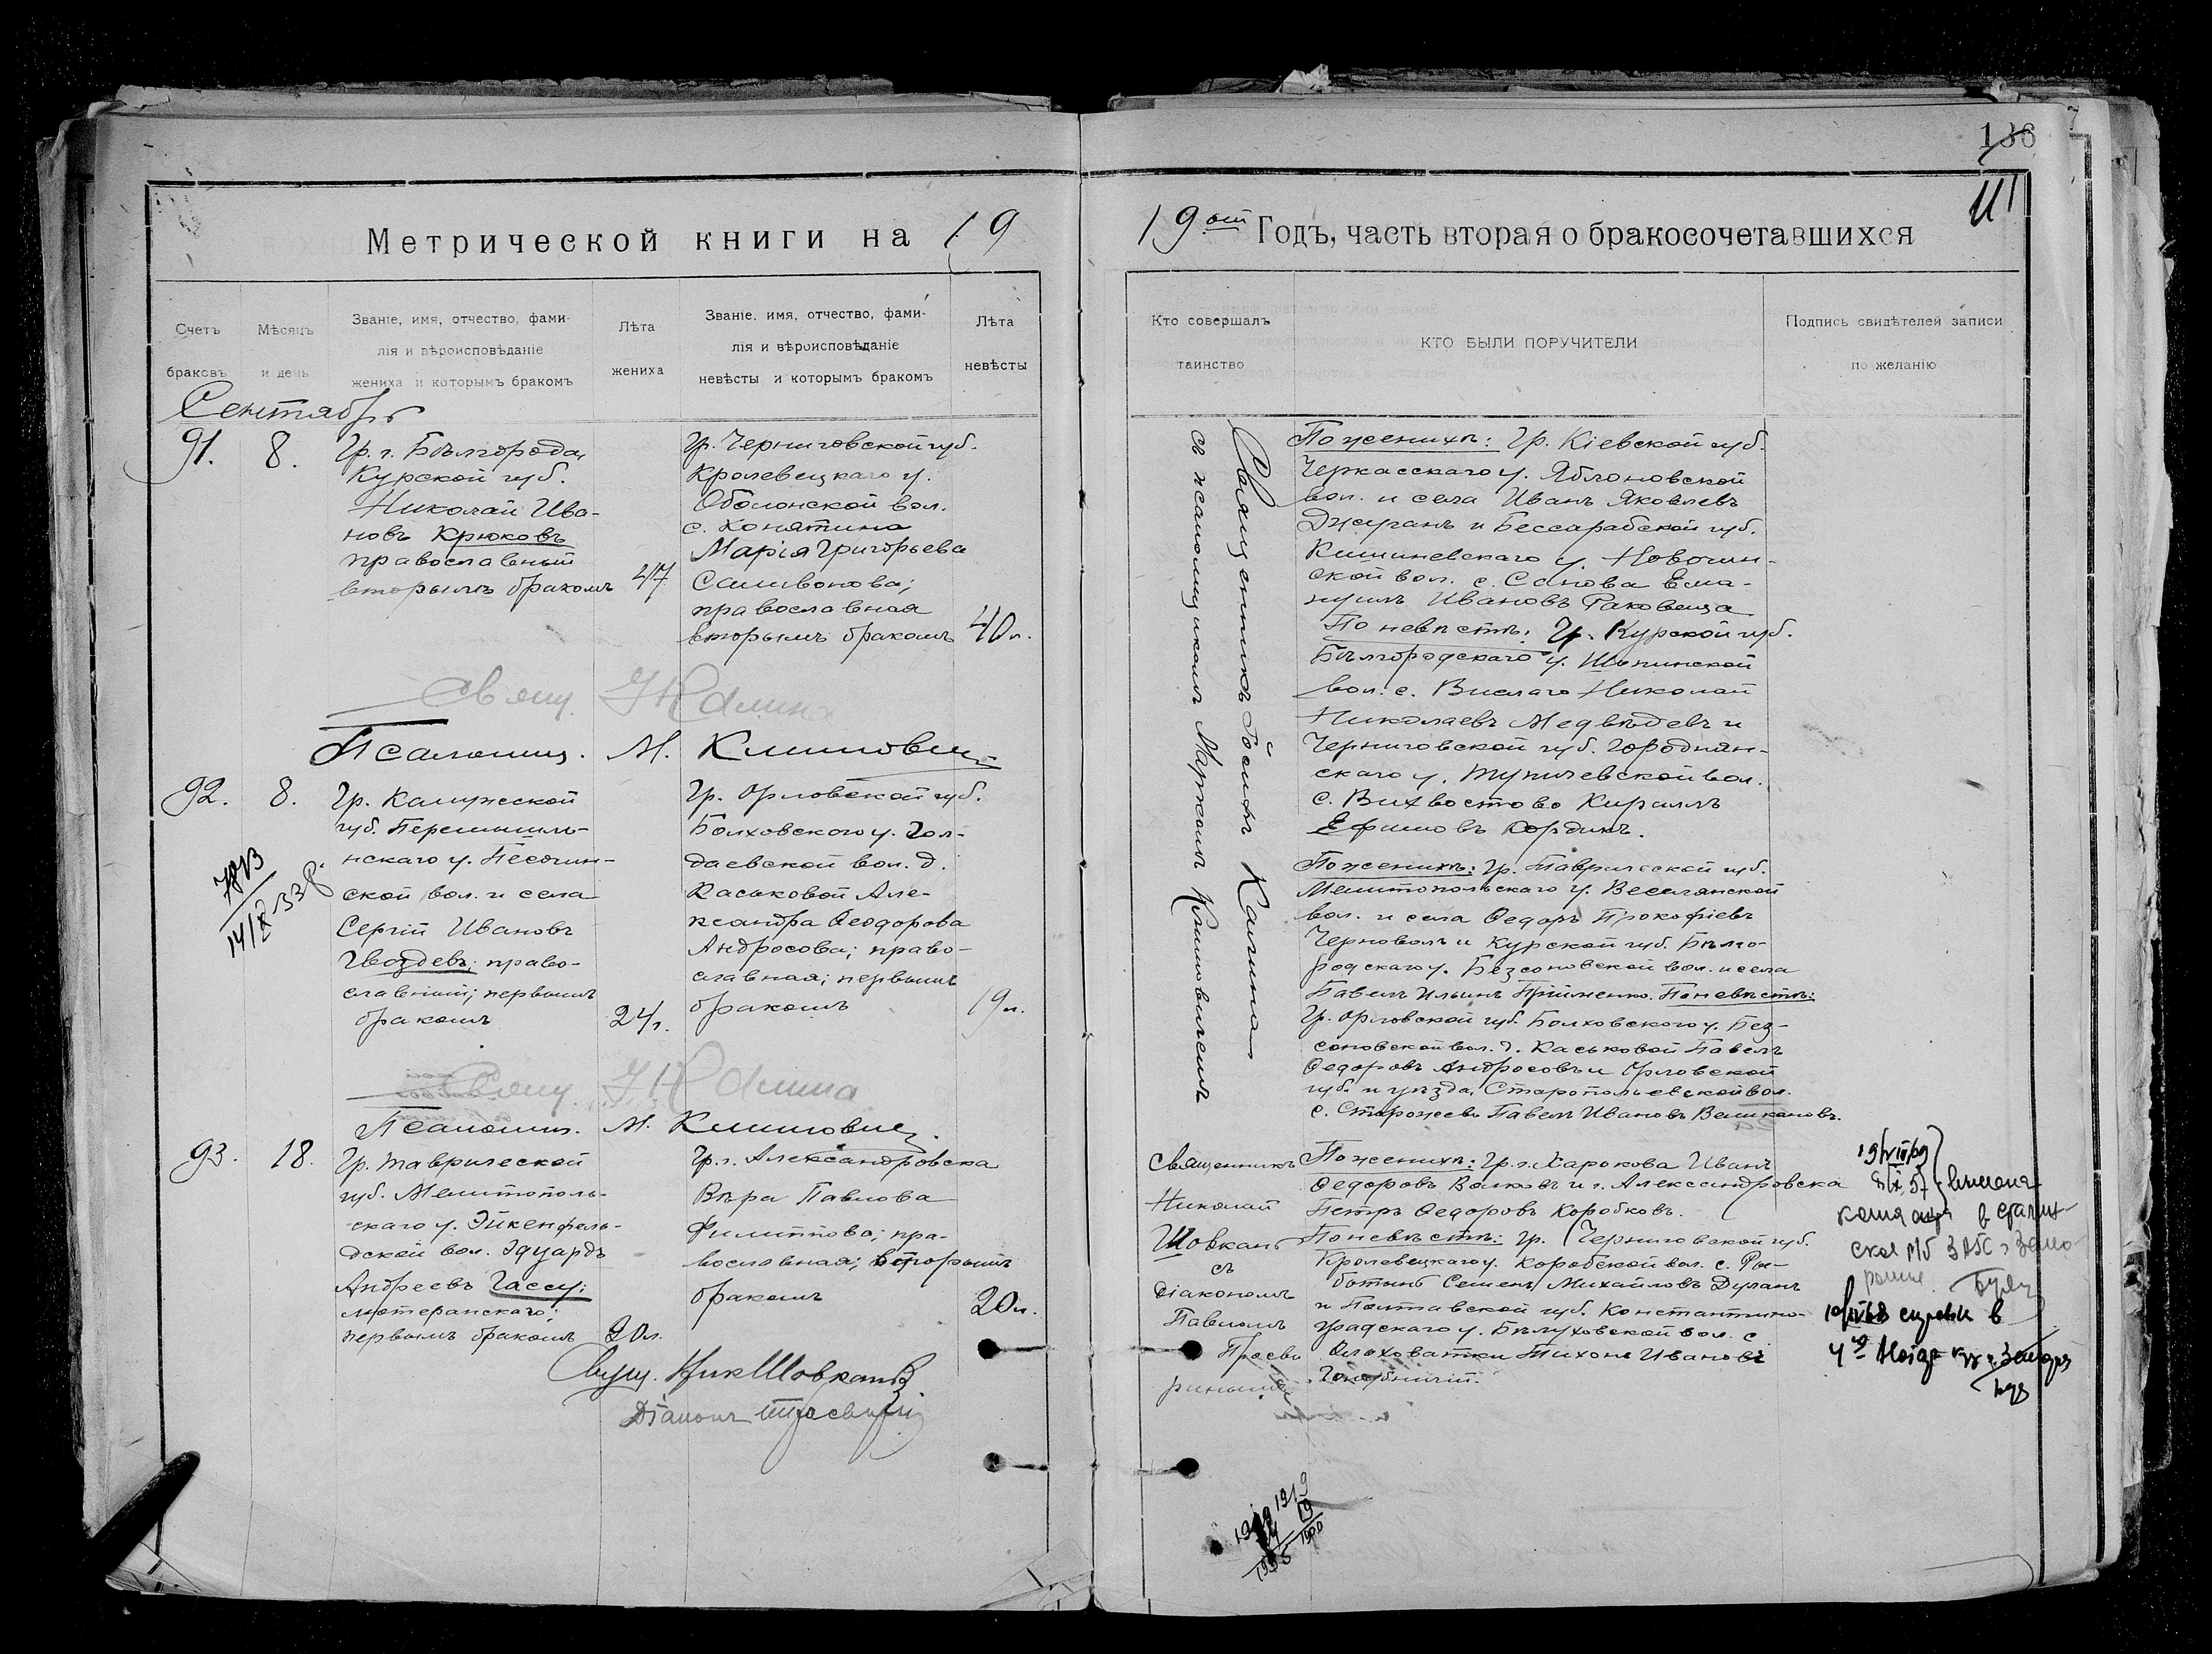 136
111
Метрической книги на 19
19ый Годъ, часть вторая о бракосочетавшихся
Счетъ
браковъ
Мѣсяцъ
и день
Званіе, имя, отчество, фами-
лія и вѣроисповѣданіе
жениха и которымъ бракомъ
Лѣта
жениха
Званіе, имя, отчество, фами-
лія и вѣроисповѣданіе
невѣсты и которымъ бракомъ
Лѣта
невѣсты
Кто совершалъ
таинство
КТО БЫЛИ ПОРУЧИТЕЛИ
Подпись свидѣтелей записи
по желанію
Сентябрь
91.
8.
Гр. г. Бѣлгорода,
Курской губ.
Николай Ива-
новъ Крюковъ
православный
вторымъ бракомъ
47
Гр. Черниговской губ.
Кролевецкаго у.
Оболонской вол.
с. Конятина
Марія Григорьева
Саливонова;
православная
вторымъ бракомъ
40 л.
Священникъ Іосифъ Калина
съ псаломщикомъ Маркомъ Климовичемъ
По женихѣ: Гр. Кіевской губ.
Черкасскаго у. Яблоновской
вол. и села Иванъ Яковлевъ
Джуганъ и Бессарабской губ.
Кишиневскаго у.
ской вол. с. Ема-
нуилъ Ивановъ Раковица
По невѣстѣ: Гр. Курской губ.
Бѣлгородскаго у. Шопинской
вол. с. Вислаго Николай
Николаевъ Медвѣдевъ и
Черниговской губ. Городнян-
скаго у. Тупичевской вол.
с. Вихвостово Кириллъ
Ефимовъ Кордикъ.
Свящ. І. Калина
Псаломщ. М. Климович
92.
8.
Гр. Калужской
губ. Перемышль-
нскаго у. Песочин-
ской вол. и села
Сергій Ивановъ
Гвоздевъ; право-
славный; первымъ
бракомъ
24 г.
Гр. Орловской губ.
Болховского у. Гол-
даевской вол. д.
Каськовой Але-
ксандра Ѳеодорова
Андросова; право-
славная; первымъ
бракомъ
19 л.
14/X-33 р.
По женихѣ: Гр. Таврической губ.
Мелитопольскаго у. Веселянской
вол. и села Ѳедоръ Прокофіевъ
Черноволъ и Курской губ. Бѣлго-
родскаго у. Безсоновской вол. и села
Павелъ Ильинъ Прійменко. По невѣстѣ:
Гр. Орловской губ. Болховского у. Без-
соновской вол. д. Каськовой Павелъ
Ѳедоровъ Андросовъ и Орловской
губ. и уѣзда,
с. Павелъ Ивановъ Великановъ.
Свящ. І. Калина
Псаломщ. М. Климович
93.
18.
Гр. Таврической
губ. Мелитополь-
скаго у. Эйкенфель-
дской вол. Эдуардъ
Андреевъ Гассу;
лютеранскаго;
первымъ бракомъ
20 л.
Гр. г. Александровска
Вѣра Павлова
Филиппова; пра-
вославная; вторымъ
бракомъ
20 л.
Священникъ
Николай
Шовкань
съ
Діакономъ
Павломъ
По женихѣ: Гр. г. Харькова Иванъ
Ѳедоровъ Волковъ и г. Александровска
Петръ Ѳедоровъ Коробковъ.
По невѣстѣ: Гр. Черниговской губ.
Кролевецкаго у. Коробской вол. с. Ры-
ботынь Семенъ Михайловъ Дуланъ
и Полтавской губ. Константино-
градскаго у. Бѣлуховской вол. с.
Олоховатки Тихонъ Ивановъ
Свящ. Ник Шовкань
Діаконъ
1919
19
1900